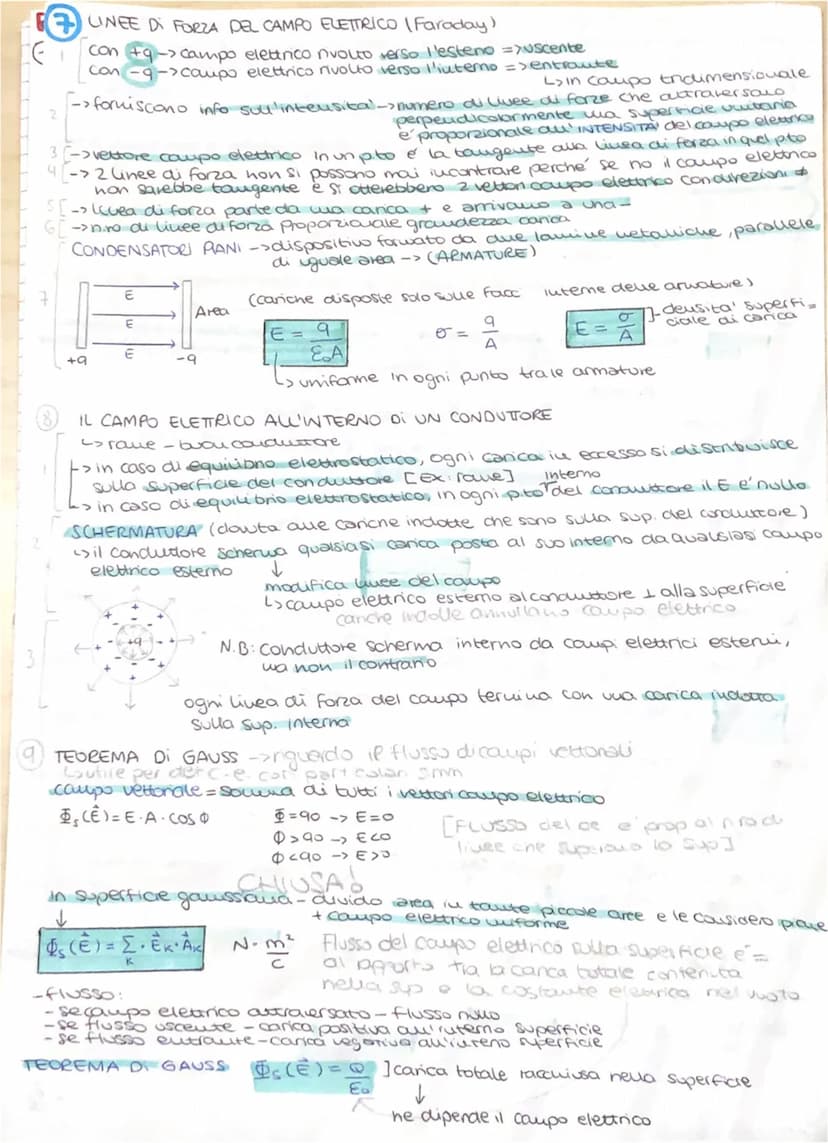 7 LINEE DI FORZA DEL CAMPO ELETTRICO (Faraday)
1 con +q -> campo elettrico rivolto verso l'esterno => uscente
con -q -> campo elettrico rivolto verso l'interno => entrante
↳ in campo tridimensionale
2 -> forniscono info sull'intensità -> numero di linee di forze che attraversano
perpendicolarmente una superficie unitaria
è proporzionale all'INTENSITÀ del campo elettrico
3 -> vettore campo elettrico in un p.to è la tangente alla linea di forza in quel p.to
4 -> 2 linee di forza non si possono mai incontrare perché se no il campo elettrico
non sarebbe tangente e si otterebbero 2 vettori campo elettrico con direzioni ≠
5 -> linea di forza parte da una carica + e arrivano a una -
6 -> n.ro di linee di forza proporzionale grandezza carica
CONDENSATORI PIANI -> dispositivo formato da due lamine metalliche, parallele
di uguale area -> (ARMATURE)
7 (cariche disposte solo sulle facc interne delle armature)
E
E
E
Area
+q -q
E = q/ε₀A
σ = q/A
E = σ/A ] densità superfi-
ciale di carica
↳ uniforme in ogni punto tra le armature
8 IL CAMPO ELETTRICO ALL'INTERNO DI UN CONDUTTORE
↳ rame - buon conduttore
1 -> in caso di equilibrio elettrostatico, ogni carica in eccesso si distribuisce
sulla superficie del conduttore [ex: rame]
interno
-> in caso di equilibrio elettrostatico, in ogni p.to del conduttore il E è nullo
2 SCHERMATURA (dovuta alle cariche indotte che sono sulla sup. del conduttore)
↳ il conduttore scherma qualsiasi carica posta al suo interno da qualsiasi campo
elettrico esterno ↓
modifica linee del campo
↳ campo elettrico esterno al conduttore ⊥ alla superficie
cariche indotte annullano campo elettrico
3 +q
N.B: conduttore scherma interno da campi elettrici esterni,
ma non il contrario
ogni linea di forza del campo termina con una carica indotta
sulla sup. interna
9 TEOREMA DI GAUSS -> riguardo il flusso di campi vettoriali
↳ utile per det c.e. con part color. simm
campo vettoriale = somma di tutti i vettori campo elettrico
Φₛ(E⃗) = E · A · cos Φ
Φ = 90 -> E = 0
Φ > 90 -> E < 0
Φ < 90 -> E > 0
[FLUSSO del ce è prop al n.ro di
linee che superano la sup]
CHIUSA!
in superficie gaussiana - divido area in tante piccole aree e le considero piane
+ campo elettrico uniforme
↓
Φₛ(E⃗) = Σ · E⃗ₖ · A⃗ₖ
K
N · m²/C
Flusso del campo elettrico sulla superficie è =
al rapporto tra la carica totale contenuta
nella sup e la costante elettrica nel vuoto
- flusso:
- se campo elettrico attraversato - flusso nullo
- se flusso uscente - carica positiva all'interno superficie
- se flusso entrante - carica negativa all'interno superficie
TEOREMA DI GAUSS Φₛ(E⃗) = Q/ε₀ ] carica totale racchiusa nella superficie
↓
ne dipende il campo elettrico